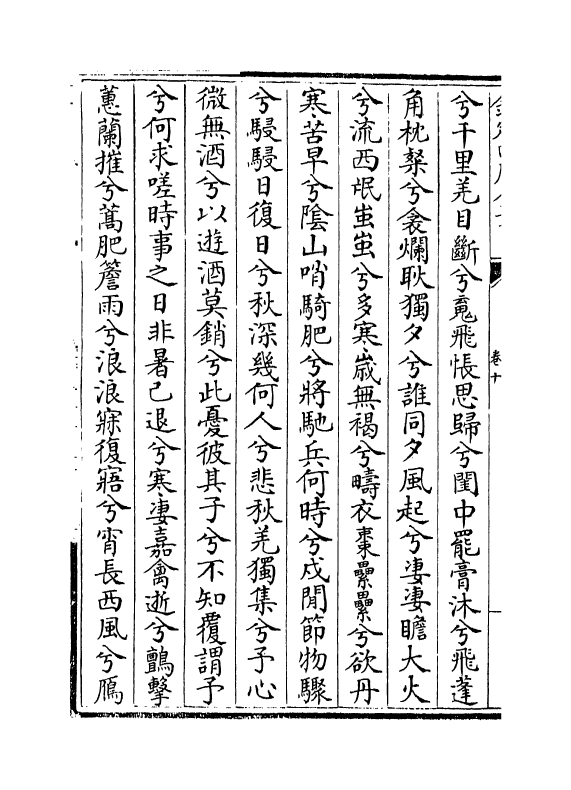 卷十
兮千里羌目斷兮䰟飛悵思歸兮閨中罷膏沐兮飛蓬
角枕粲兮衾爛耿獨夕兮誰同夕風起兮淒淒瞻大火
兮流西氓蚩蚩兮多寒歲無褐兮疇衣棗纍纍兮欲丹
寒苦早兮陰山哨騎肥兮將馳兵何時兮戍閒節物驟
兮駸駸日復日兮秋深幾何人兮悲秋羌獨集兮予心
微無酒兮以遊酒莫銷兮此憂彼其子兮不知覆謂予
兮何求嗟時事之日非暑已退兮寒凄嘉禽逝兮鸇擊
蕙蘭摧兮蒿肥簷雨兮浪浪寐復寤兮宵長西風兮鴈